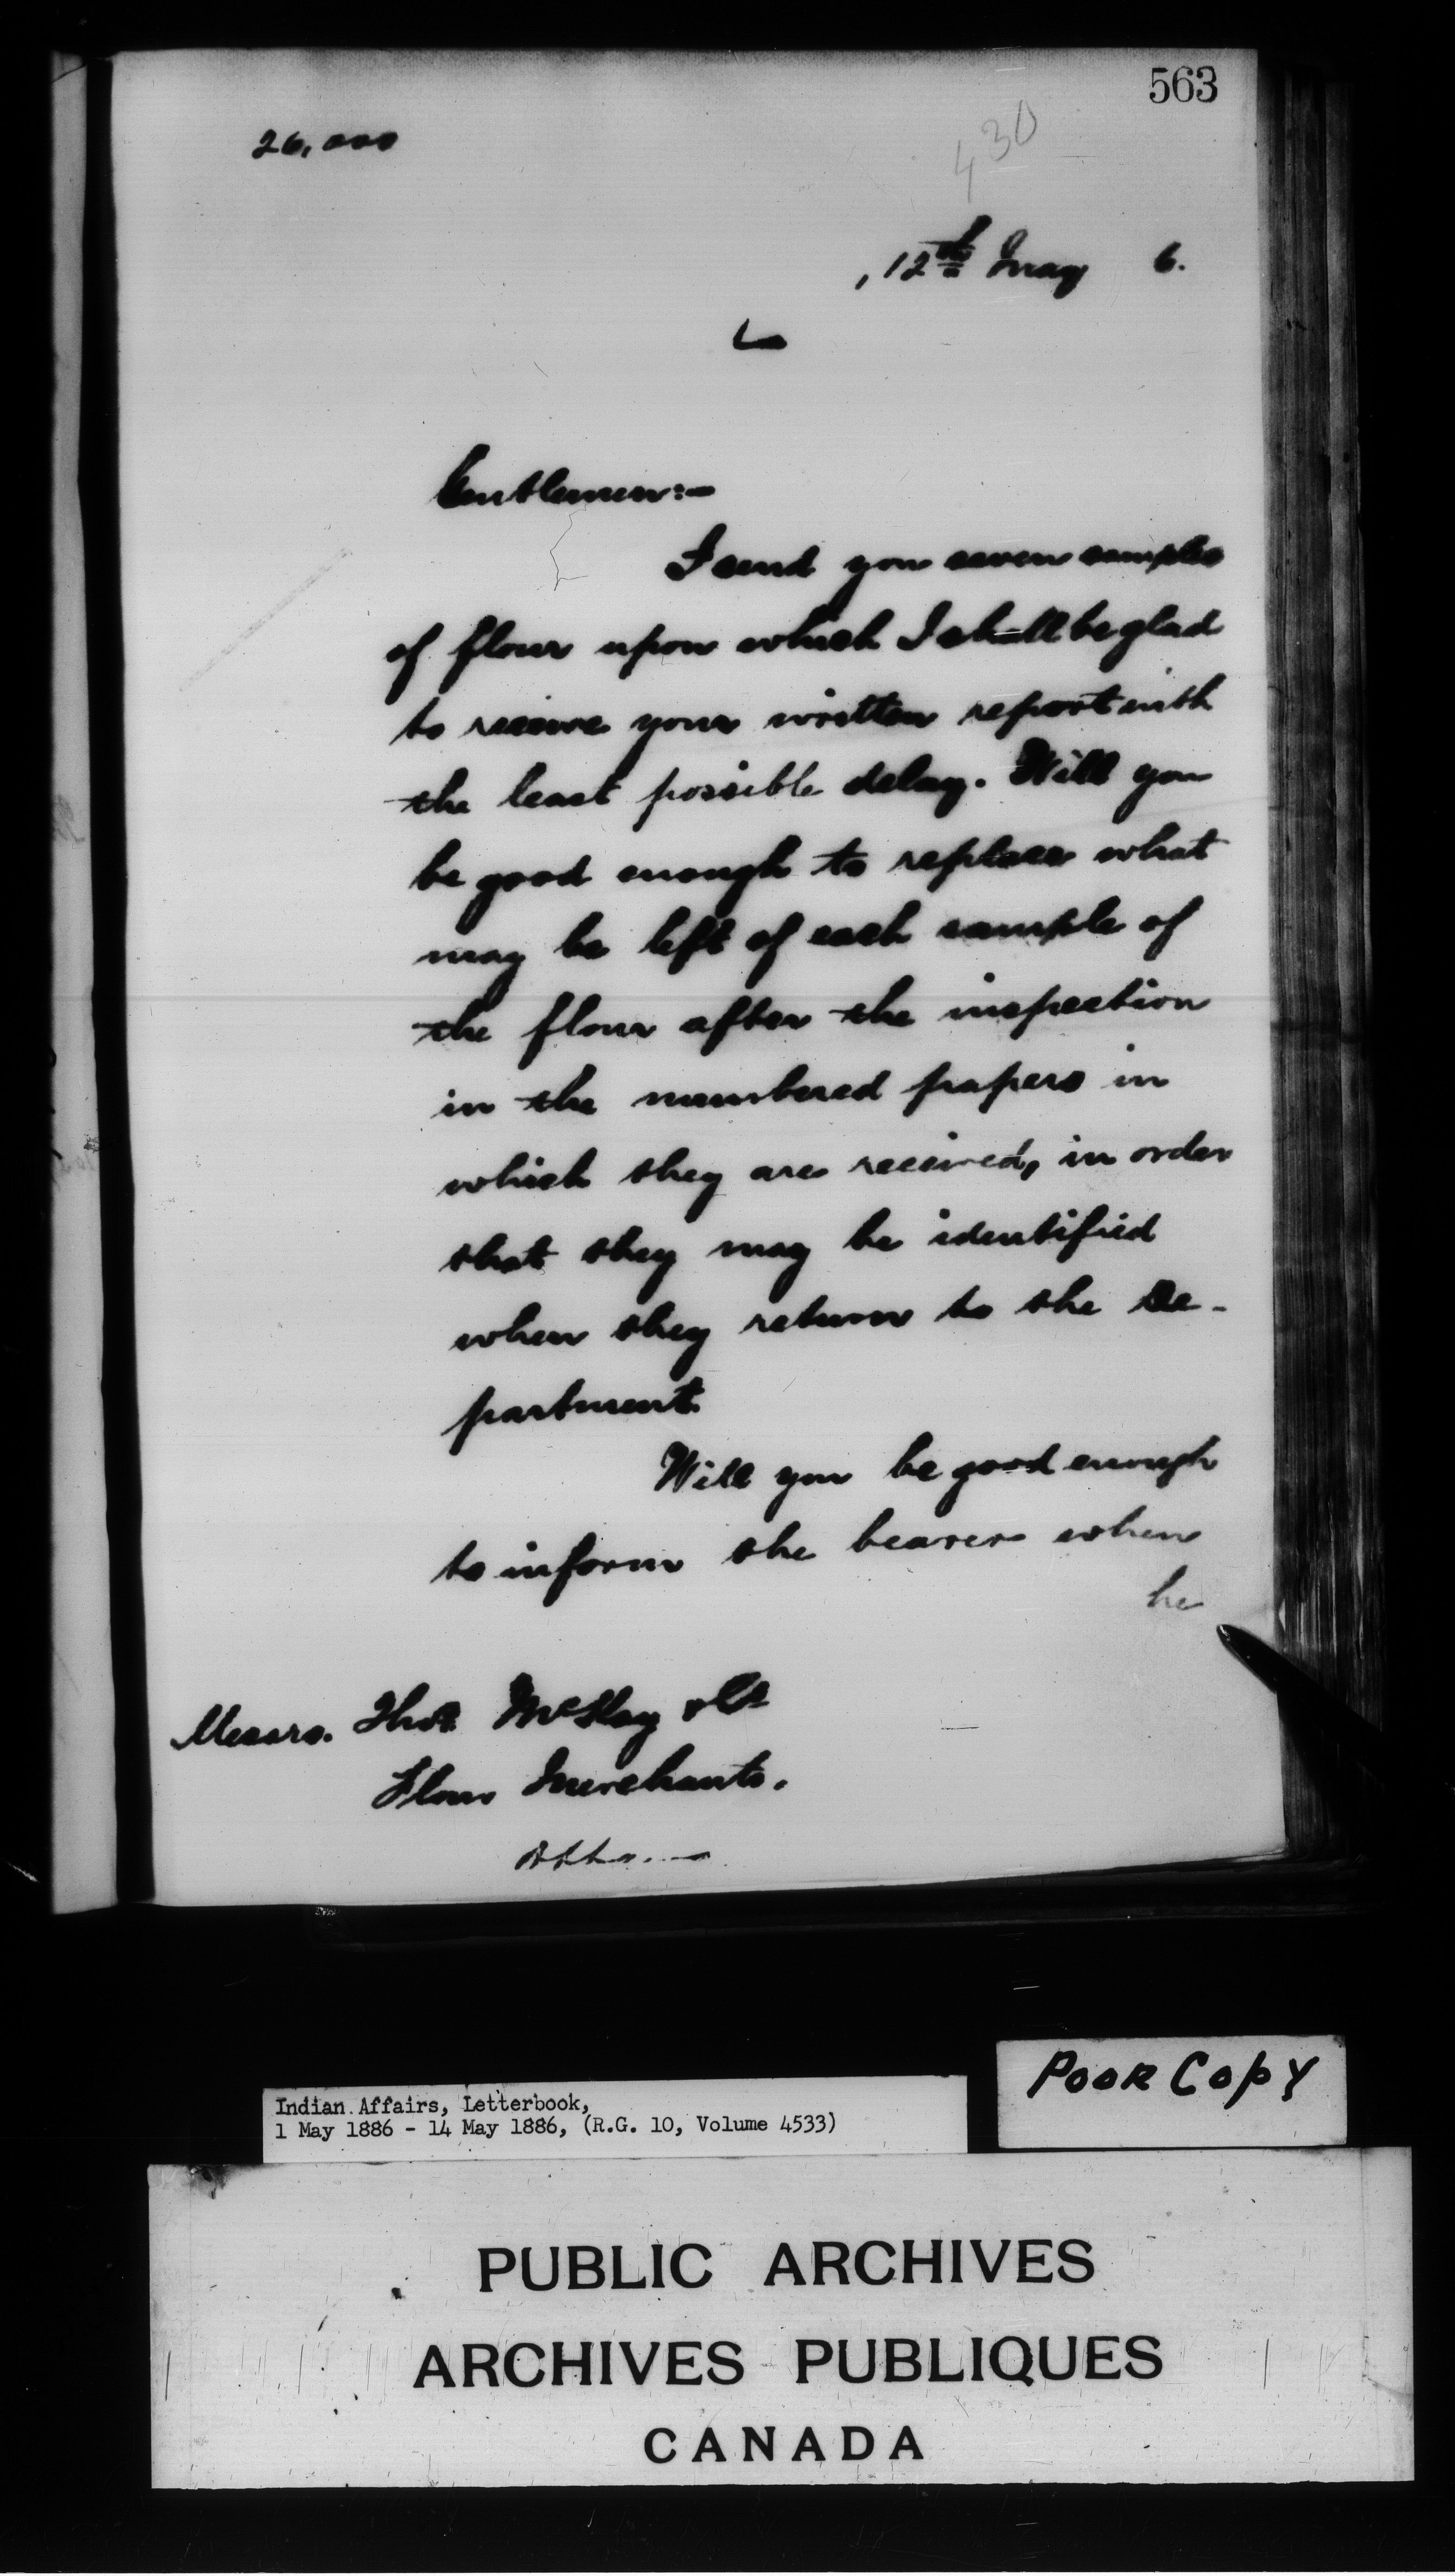 563
26,000
430
, 12th May 6.
Gentlemen:-
I send you seven samples
of flour upon which I shall be glad
to receive your written report with
the least possible delay. Will you
be good enough to replace what
may be left of each sample of
the flour after the inspection
in the numbered papers in
which they are received, in order
that they may be identified
when they return to the De-
partment.
Will you be good enough
to inform the bearer when
he
Messrs. Thos McKay & Co
Flour Merchants.
Indian Affairs, Letterbook,
1 May 1886 - 14 May 1886, (R.G. 10, Volume 4533)
POOR COPY
PUBLIC ARCHIVES
ARCHIVES PUBLIQUES
CANADA